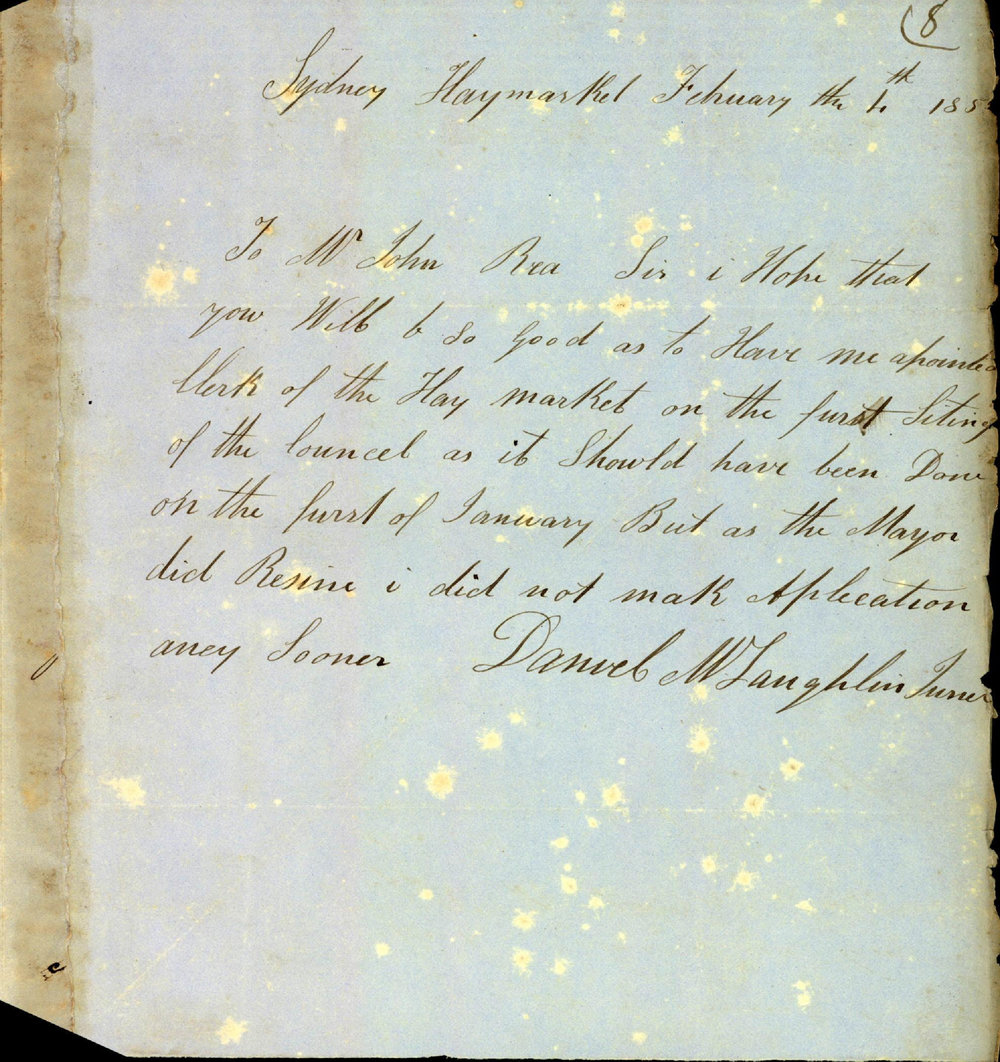 (8
Sydney Haymarket February the 4th 185
To Mr John Rea Sir i Hope that
you Will b so good as to Have me apointed
Clerk of the Hay market on the furst Siting
of the Councel as it Showld have been Done
on the furst of January But as the Mayor
did Resine i did not mak Aplecation
aney Sooner Daniel McLaughlin Juner